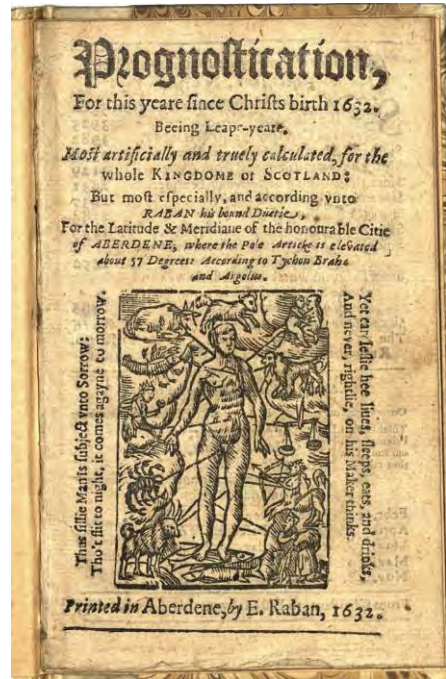 Prognostication,
For this yeare since Christs birth 1632.
Beeing Leape-yeare.
Most artificially and truely calculated, for the
whole KINGDOME of SCOTLAND:
But most especially, and according vnto
RABAN his bound Duetie,
For the Latitude & Meridiane of the honourable Citie
of ABERDENE, where the Pole Articke is elevated
about 57 Degrees: According to Tychon Brahe
and Argolus.
Thus sillie Man is subject vnto Sorrow:
Tho't flit to night, it comes agayne to morrow.
Yet carelesse hee liues, sleeps, eats, and drinks,
And never, rightlie, on his Maker thinks.
Printed in Aberdene, by E. Raban, 1632.